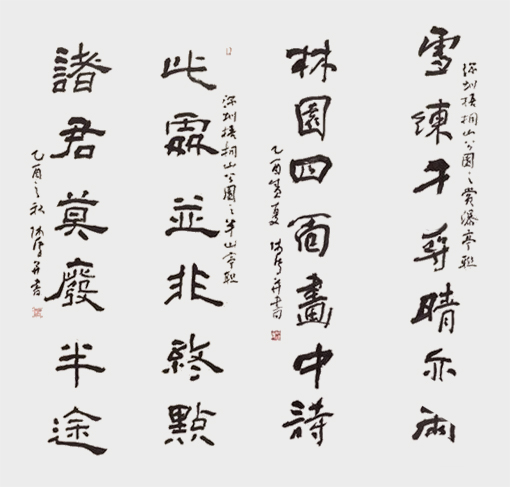 深圳梧桐山公園之賞瀑亭联
雪練千尋晴亦雨
林園四面畫中詩
乙酉夏 并書
深圳梧桐山公園之半山亭联
此處並非終點
諸君莫廢半途
乙酉之秋 并書